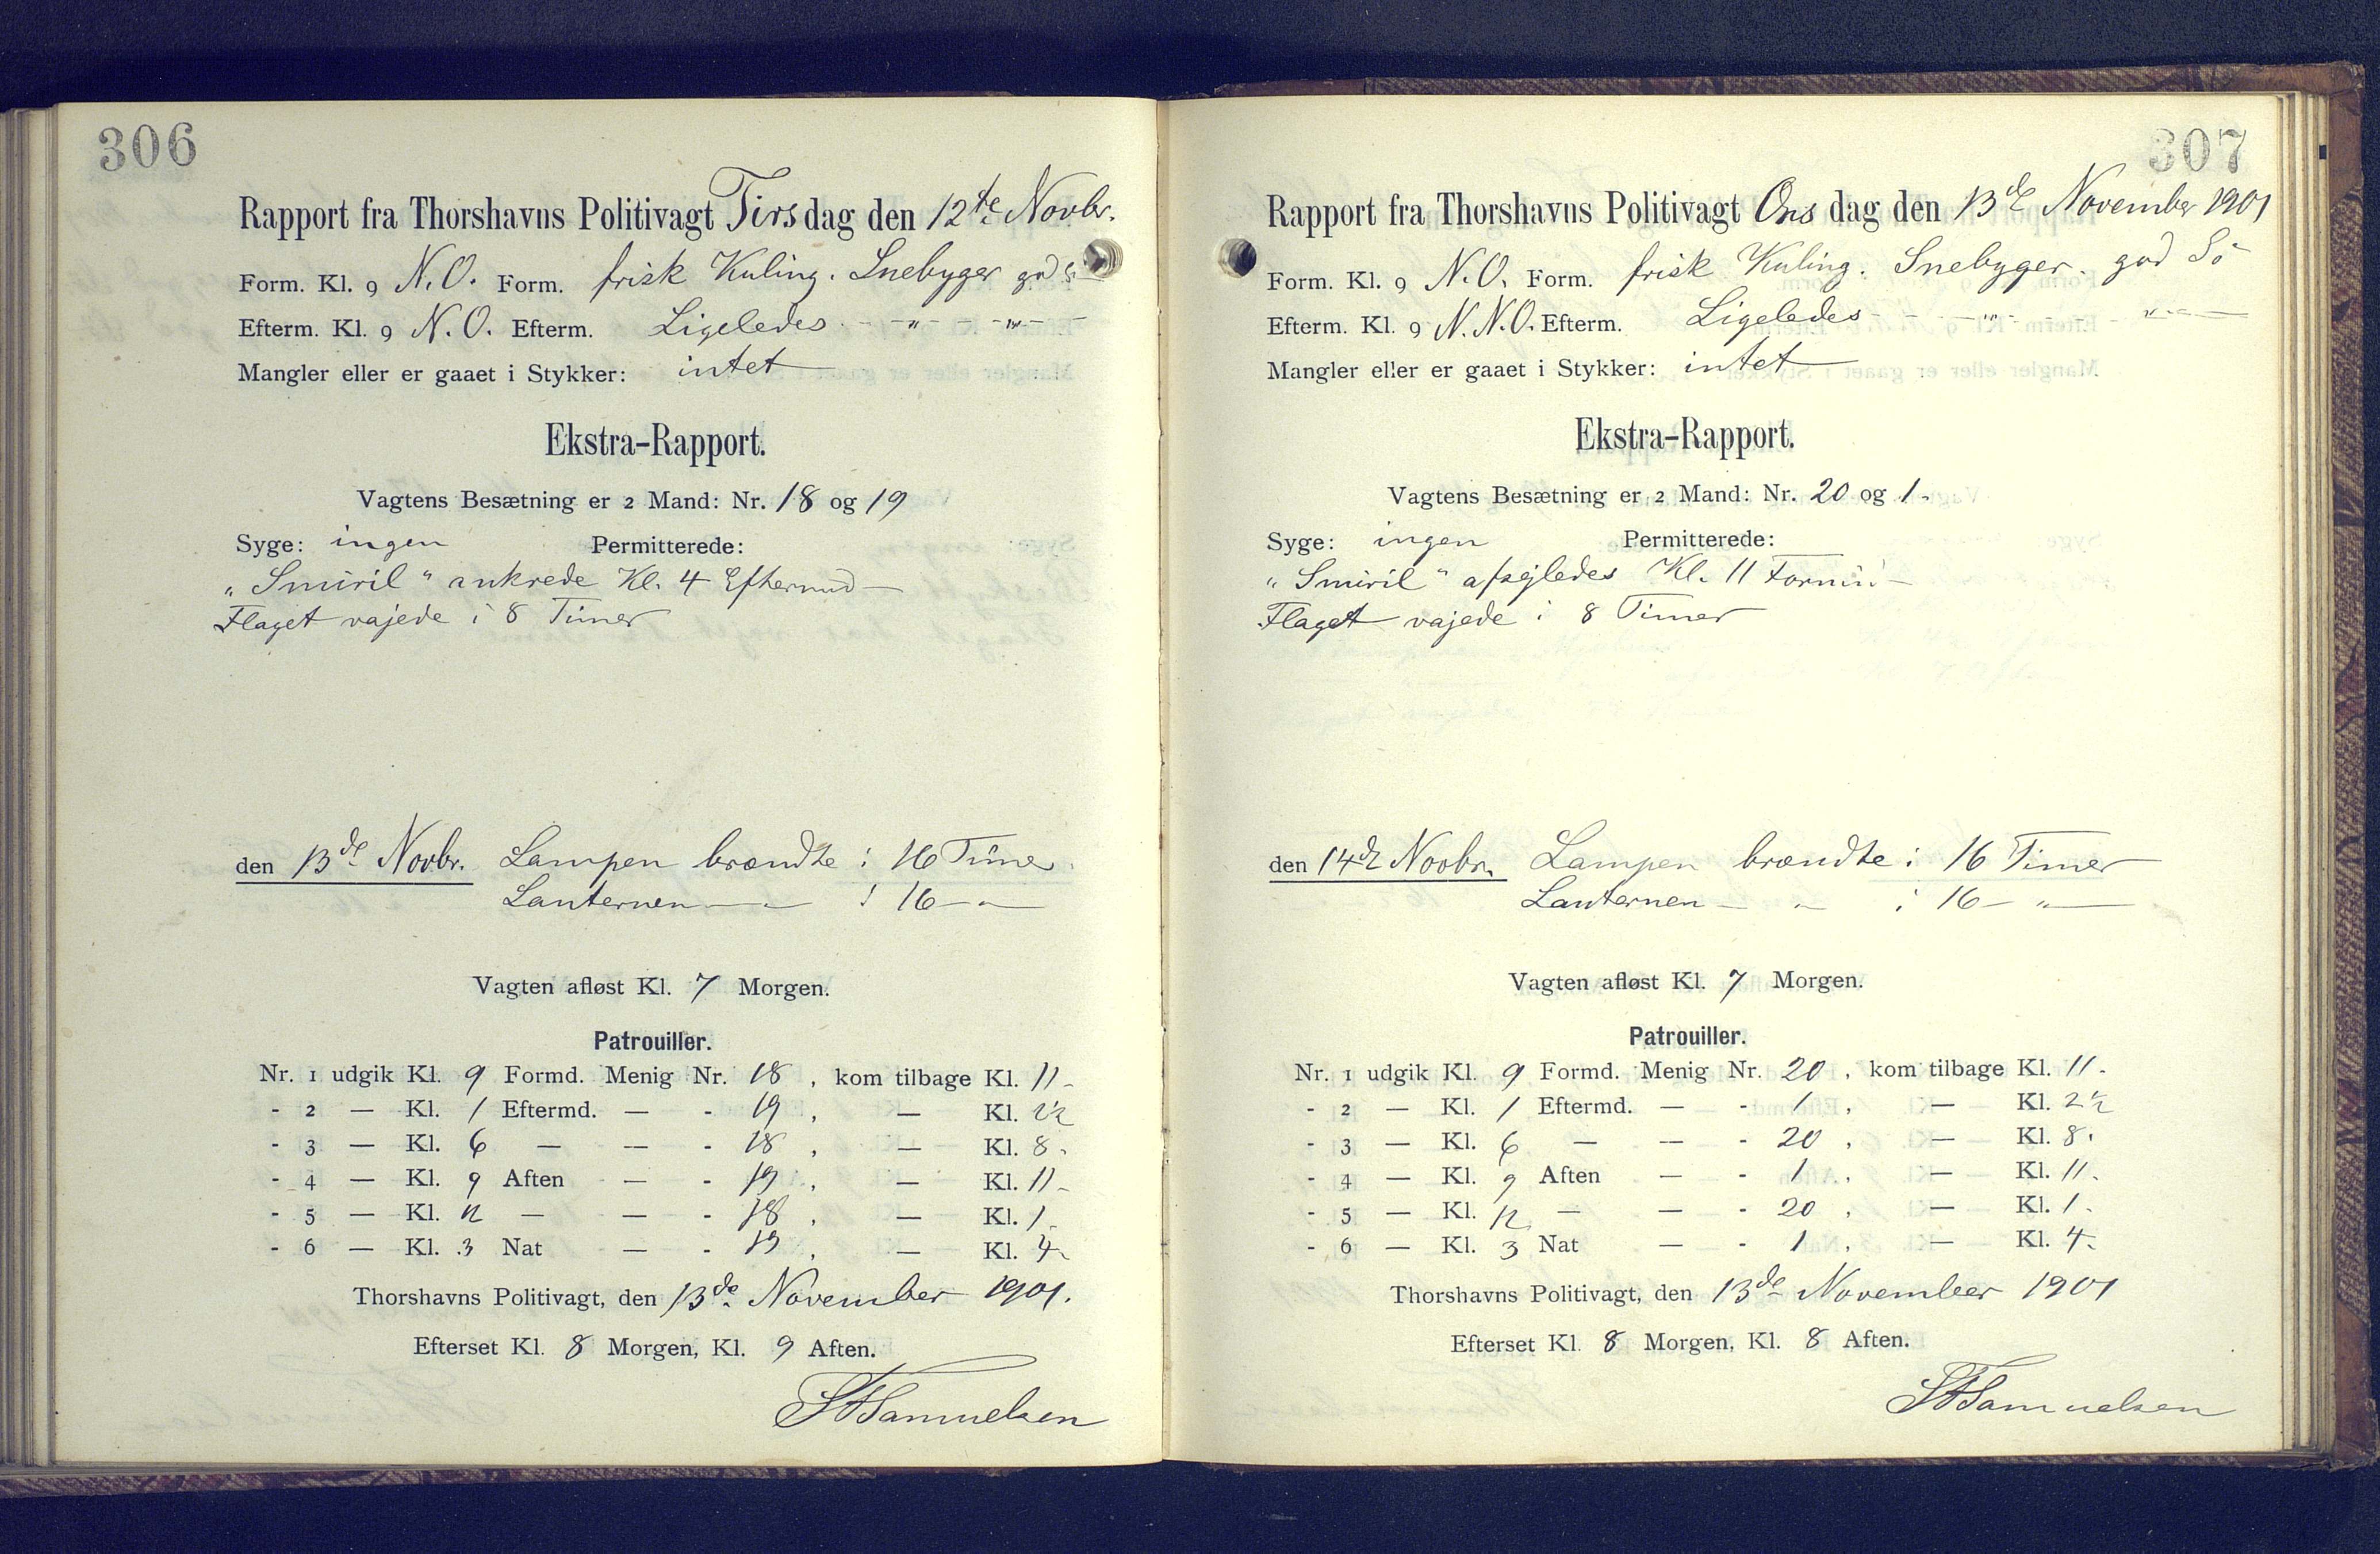 306
Rapport fra Thorshavns Politivagt Tirsdag den 12te Novbr.
Form. Kl. 9 N.O. Form. frisk Kuling. Snebyger god
Efterm. Kl. 9 N.O. Efterm. Ligeledes - " - " -
Mangler eller er gaaet i Stykker: intet
Ekstra-Rapport.
Vagtens Besætning er 2 Mand: Nr. 18 og 19
Syge: ingen Permitterede:
"Smiril" ankrede Kl. 4 Eftermd
Flaget vajede i 8 Timer
den 13de Novbr. Lampen brændte i 16 Timer
Lanternen — " — i 16 — "
Vagten afløst Kl. 7 Morgen.
Patrouiller.
Nr. 1 udgik Kl. 9 Formd. Menig Nr. 18, kom tilbage Kl. 11
- 2 — Kl. 1 Eftermd. — - 19, — Kl. 2½
- 3 — Kl. 6 — — - 18, — Kl. 8.
- 4 — Kl. 9 Aften — - 19, — Kl. 11
- 5 — Kl. 12 — — - 18, — Kl. 1
- 6 — Kl. 3 Nat — - 19, — Kl. 4
Thorshavns Politivagt, den 13de November 1901.
Efterset Kl. 8 Morgen, Kl. 9 Aften.
Samuelsen
307
Rapport fra Thorshavns Politivagt Onsdag den 13de November 1901
Form. Kl. 9 N.O. Form. frisk Kuling. Snebyger. god Sö
Efterm. Kl. 9 N.N.O. Efterm. Ligeledes - " - " -
Mangler eller er gaaet i Stykker: intet
Ekstra-Rapport.
Vagtens Besætning er 2 Mand: Nr. 20 og 1.
Syge: ingen Permitterede:
"Smiril" afsejledes Kl. 11 Formid
Flaget vajede i 8 Timer
den 14de Novbr. Lampen brændte i 16 Timer
Lanternen — " — i 16 — "
Vagten afløst Kl. 7 Morgen.
Patrouiller.
Nr. 1 udgik Kl. 9 Formd. Menig Nr. 20, kom tilbage Kl. 11.
- 2 — Kl. 1 Eftermd. — - 1, — Kl. 2½
- 3 — Kl. 6 — — - 20, — Kl. 8.
- 4 — Kl. 9 Aften — - 1, — Kl. 11.
- 5 — Kl. 12 — — - 20, — Kl. 1.
- 6 — Kl. 3 Nat — - 1, — Kl. 4.
Thorshavns Politivagt, den 13de November 1901
Efterset Kl. 8 Morgen, Kl. 8 Aften.
Samuelsen